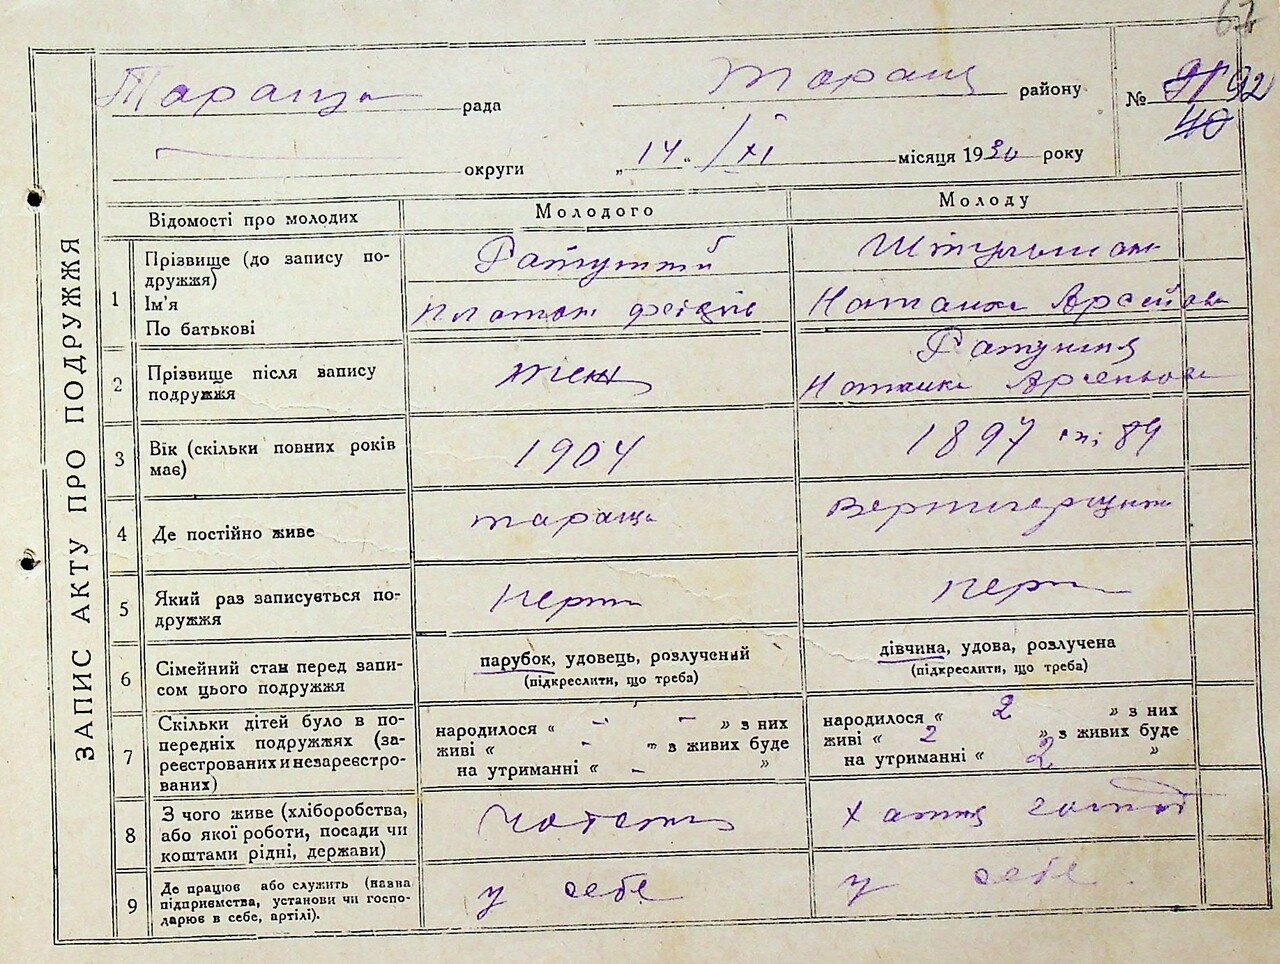 67
ЗАПИС АКТУ ПРО ПОДРУЖЖЯ
Тараща рада Таращ району № 92
40
округи „14" XI місяця 1930 року
Відомості про молодих Молодого Молоду
1 Прізвище (до запису по-
дружжя)
Ім'я
По батькові
Ратушний
Платон
Штульман
Наталка
2 Прізвище після запису
подружжя
Ратушня
Наталка
3 Вік (скільки повних років
має)
1904
1897 89
4 Де постійно живе
тараща
5 Який раз записується по-
дружжя
перш
перш
6 Сімейний стан перед запи-
сом цього подружжя
парубок, удовець, розлучений
(підкреслити, що треба)
дівчина, удова, розлучена
(підкреслити, що треба)
7 Скільки дітей було в по-
передніх подружжях (за-
реєстрованих и незареєстро-
ваних)
народилося « - - » з них
живі « - » з живих буде
на утриманні « - »
народилося « 2 » з них
живі « 2 » з живих буде
на утриманні « 2 »
8 З чого живе (хліборобства,
або якої роботи, посади чи
коштами рідні, держави)
хатня господ
9 Де працює або служить (назва
підприємства, установи чи госпо-
дарює в себе, артілі).
у себе
у себе